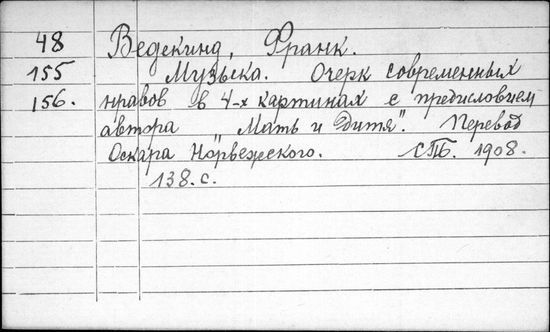 48 Ведекинд, Франк.
155 Музыка. Очерк современных
156. нравов в 4-х картинах с предисловием
автора „Мать и Дитя". Перевод
Оскара Норвежского. СПБ. 1908.
138. с.